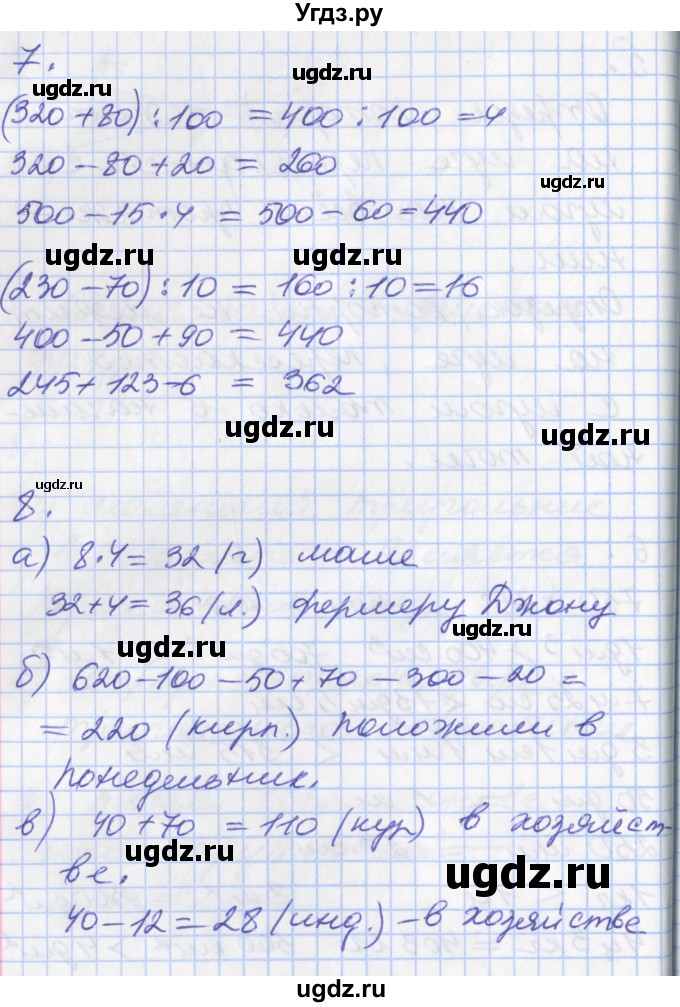 Угдз.ру
7.
ugdz.ru
(320 + 80) : 100 = 400 : 100 = 4
ugdz.ru
320 - 80 + 20 = 260
ugdz.ru
500 - 15 • 4 = 500 - 60 = 440
ugdz.ru ugdz.ru
(230 - 70) : 10 = 160 : 10 = 16
400 - 50 + 90 = 440
245 + 123 - 6 = 362
ugdz.ru ugdz.ru
ugdz.ru
8.
а) 8 • 4 = 32 (г) маше
32 + 4 = 36 (л.) фермеру Джону
ugdz.ru ugdz.ru
б) 620 - 100 - 50 + 70 - 300 - 20 =
= 220 (кирп.) положили в
понедельник.
в) 40 + 70 = 110 (кур) в хозяйст-
ugdz.ru
ве. ugdz.ru
40 - 12 = 28 (инд.) - в хозяйстве
ugdz.ru